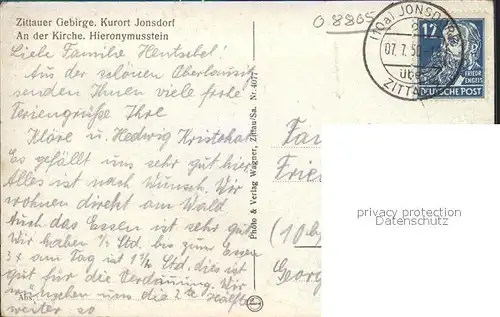 Zittauer Gebirge. Kurort Jonsdorf
An der Kirche. Hieronymusstein
O 8805
(10a) JONSDORF
07.7.50
über
ZITTAU
12
FRIEDR.
ENGELS
DEUTSCHE POST
Liebe Familie Hentschel!
Aus der schönen Oberlausitz
senden Ihnen viele frohe
Feriengrüße Ihre
Kläre u. Hedwig
Es gefällt uns sehr gut hier
Alles ist nach Wunsch. Wir
wohnen direkt am Wald
Auch das Essen ist sehr gut
Wir haben ½ Std. bis zum Essen
3x am Tag ist 1½ Std. dies ist
gut für die Verdauung. Wir
wünschen uns die 2te Hälfte
weiter so
Abs.:
Photo & Verlag Wagner, Zittau/Sa. Nr. 4077
Fa
Frie
(10b
Georg
privacy protection
AnsichtskartenVersand.com